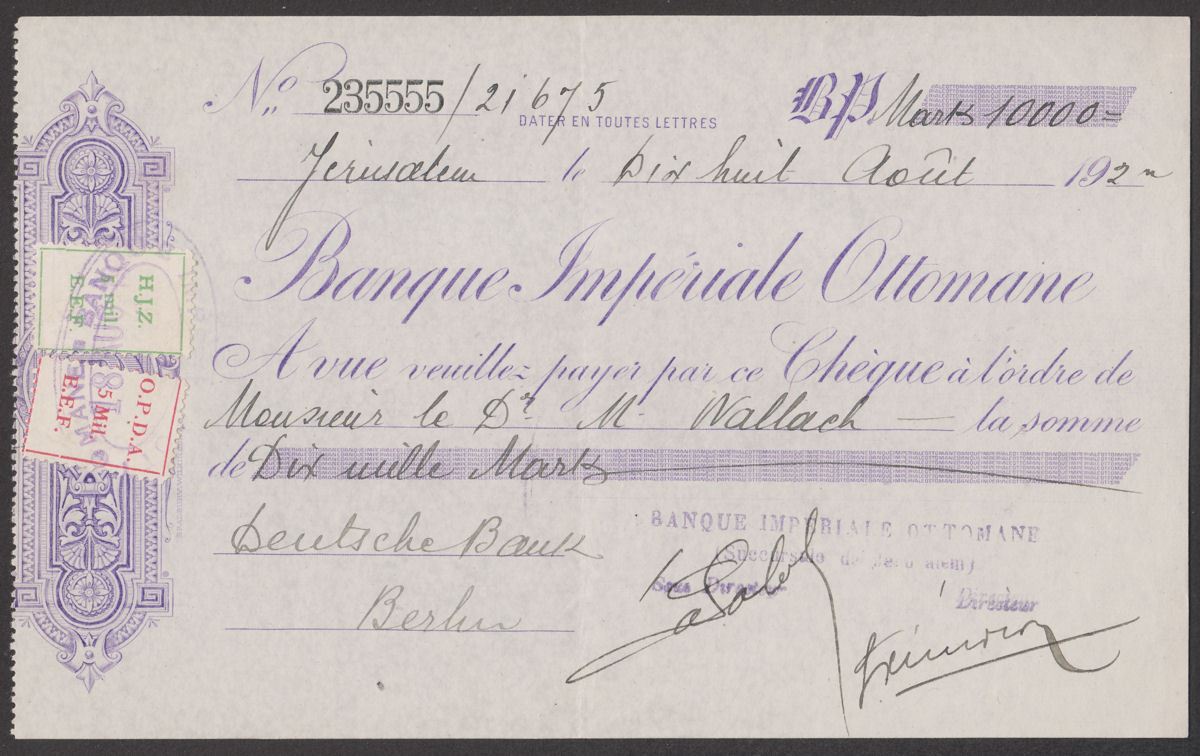 No. 235555/21675
DATER EN TOUTES LETTRES
BP Mark 10000=
Jerusalem le Dix huit Août 192
Banque Impériale Ottomane
A vue veuillez payer par ce Chèque à l'ordre de
Monsieur le Dr. M. Wallach — la somme
de Dix mille Mark
Deutsche Bank
Berlin
BANQUE IMPERIALE OTTOMANE
(Succursale de Jerusalem)
Sous Directeur
Directeur
H.J.Z.
5 mil
E.E.F.
O.P.D.A.
5 Mil
E.E.F.